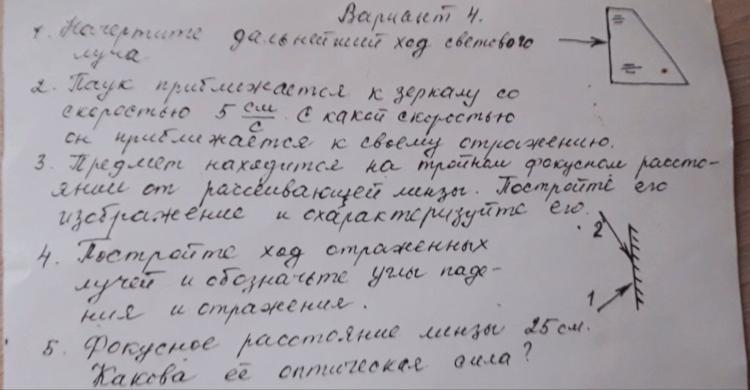 Вариант 4.
1. Начертите дальнейший ход светового
луча
2. Паук приближается к зеркалу со
скоростью 5 см/с. С какой скоростью
он приближается к своему отражению.
3. Предмет находится на тройном фокусном рассто-
янии от рассеивающей линзы. Постройте его
изображение и охарактеризуйте его.
4. Постройте ход отраженных
лучей и обозначьте углы паде-
ния и отражения.
2
1
5. Фокусное расстояние линзы 25 см.
Какова её оптическая сила?